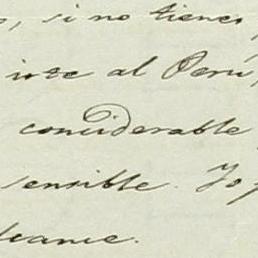 , si no tienes
irte al Perú,
considerable
sensible. Yo